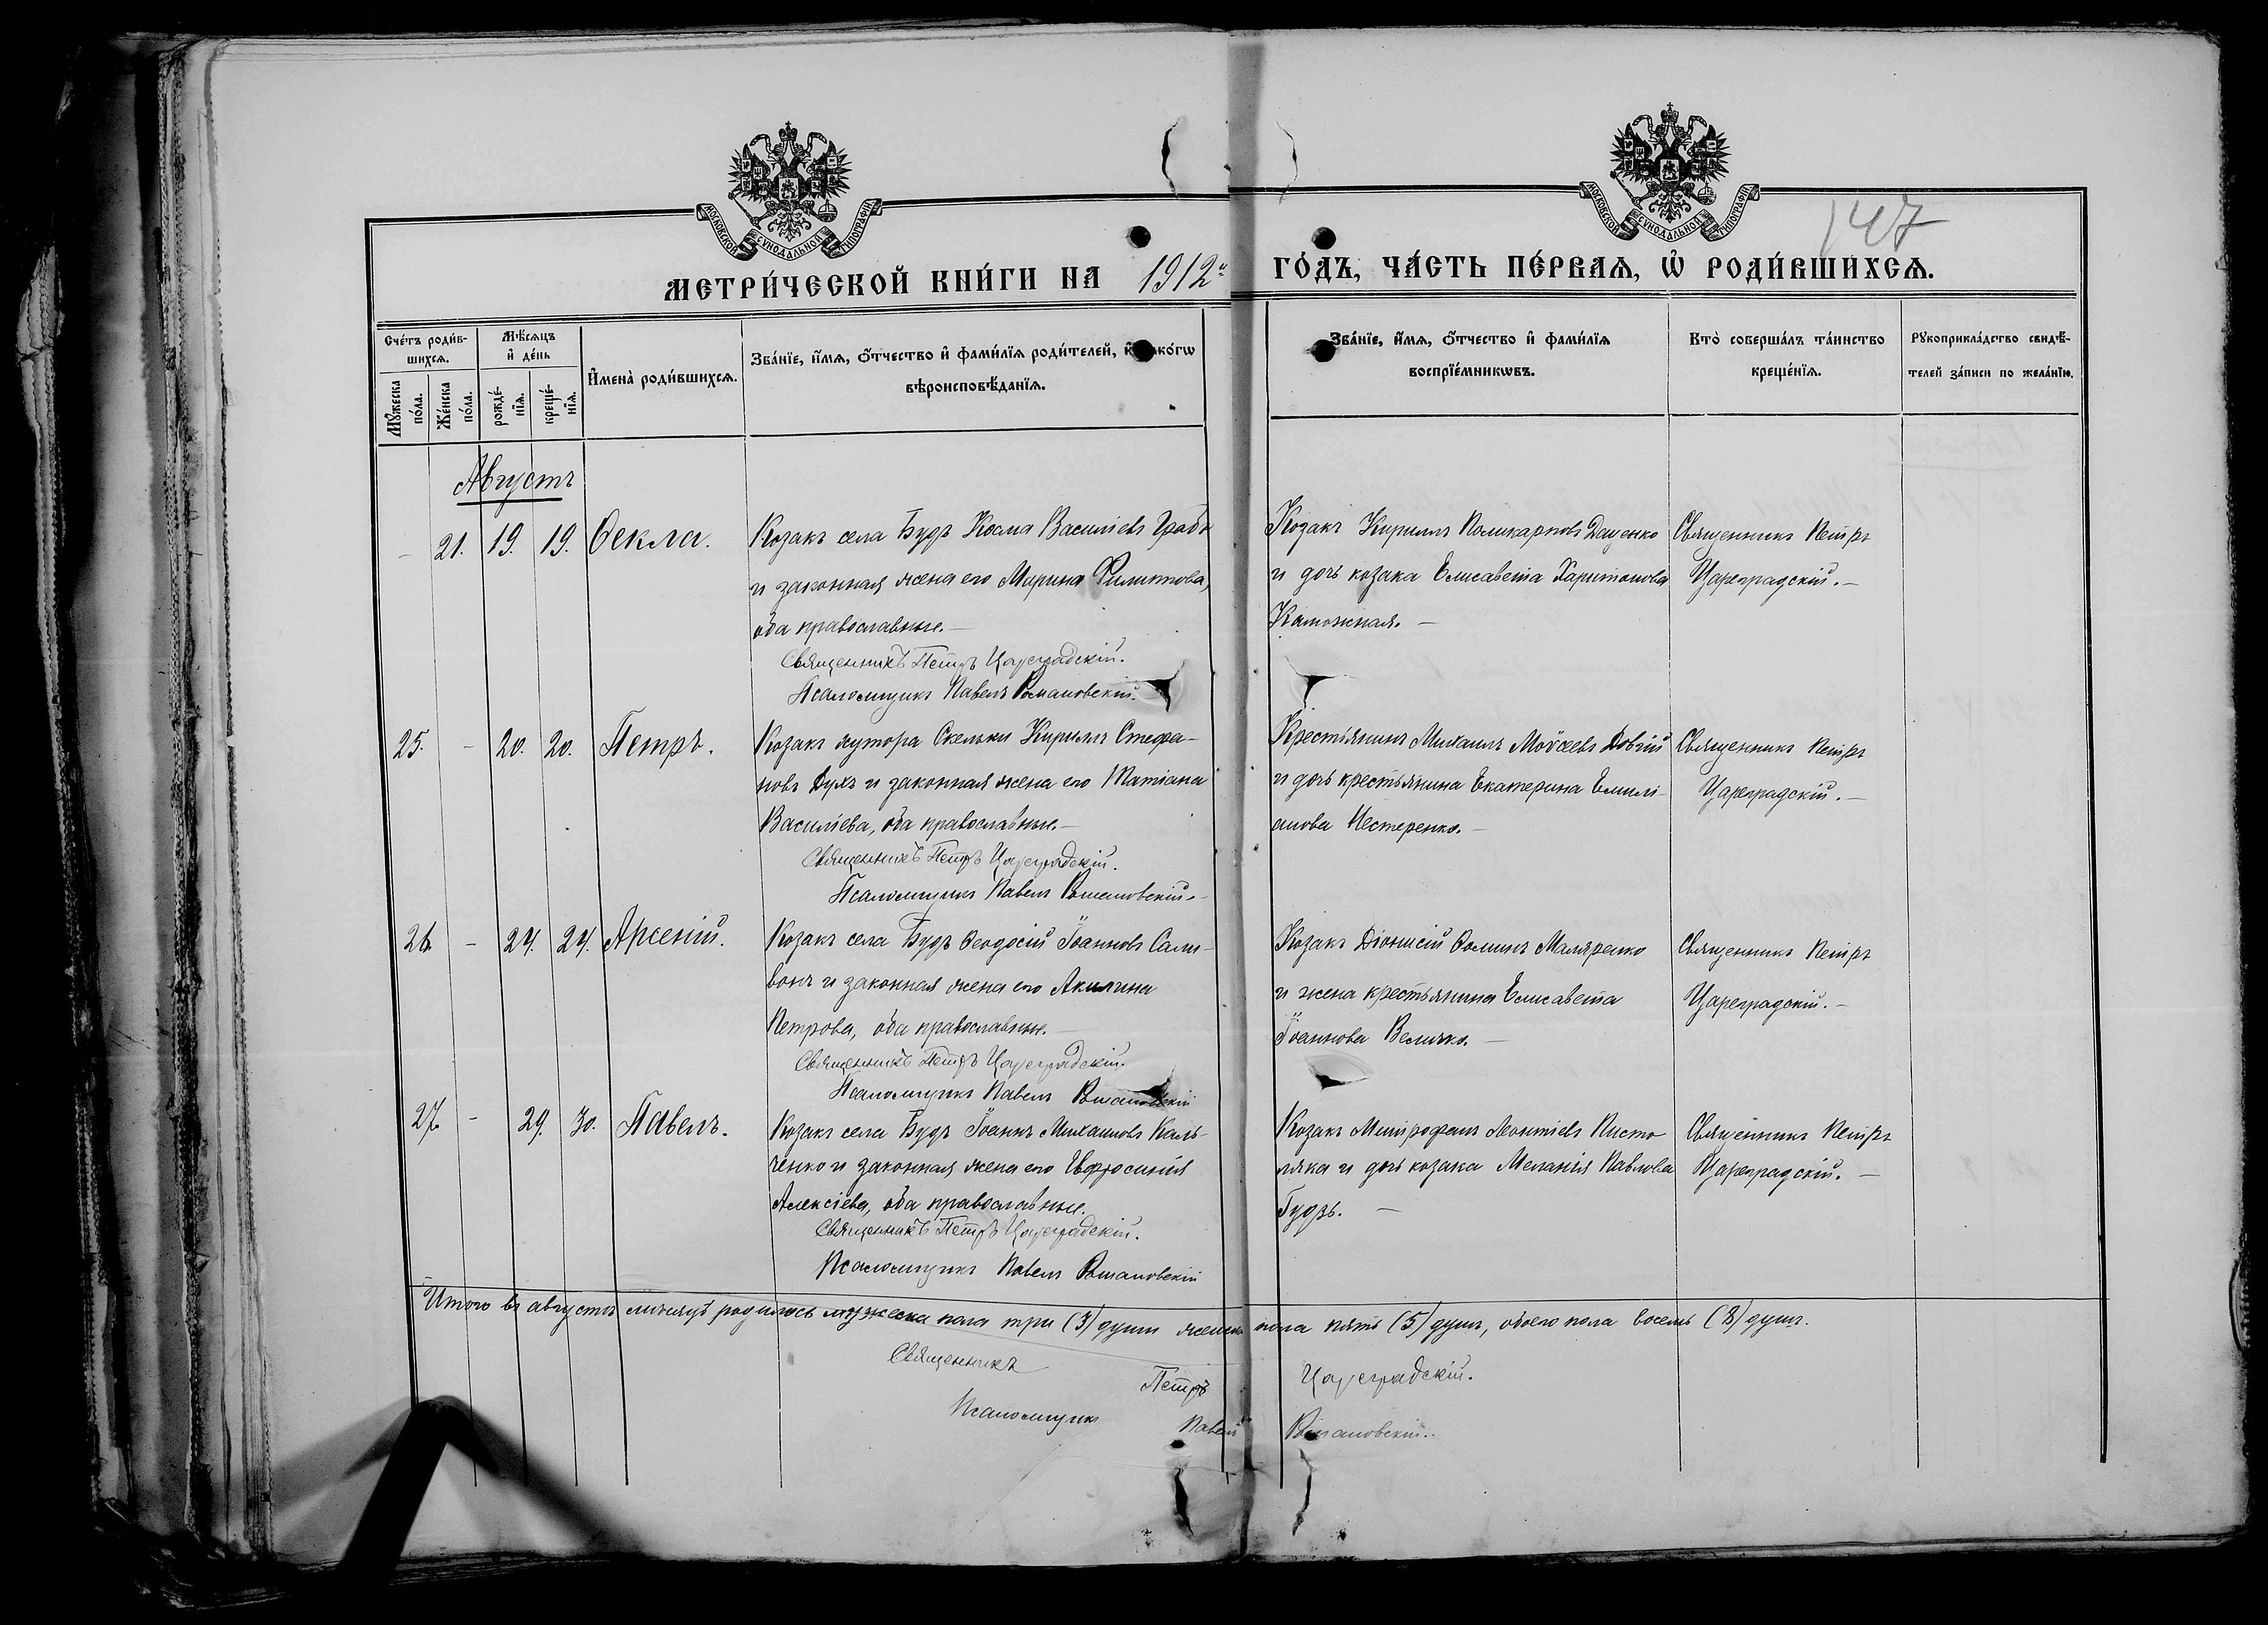 147
МОСКОВСКОЙ СѴНОДАЛЬНОЙ ТИПОГРАФІИ
МОСКОВСКОЙ СѴНОДАЛЬНОЙ ТИПОГРАФІИ
МЕТРИ́ЧЕСКОЙ КНИ́ГИ НА 1912й ГО́ДЪ, ЧА́СТЬ ПЕ́РВАѦ, Ѽ РОДИ́ВШИХСѦ.
Счéтъ роди́в-
шихсѧ.
Мꙋжеска
по́ла.
Же́нска
по́ла.
Мѣ́сѧцъ
и҆ де́нь
рожде́-
нїѧ.
креще́-
нїѧ.
И҆мена̀ роди́вшихсѧ.
Зва́нїе, и҆́мѧ, ѻ҆́тчество и҆ фами́лїѧ роди́телей, и҆ како́гѡ
вѣроисповѣ́данїѧ.
Зва́нїе, и҆́мѧ, ѻ҆́тчество и҆ фами́лїѧ
воспрїе́мникѡвъ.
Кто̀ соверша́лъ та́инство
креще́нїѧ.
Рꙋкоприкла́дство свидѣ́-
телей за́писи по жела́нїю.
Августъ
- 21. 19. 19. Ѳекла.
Козакъ села Будъ Косма Василіевъ
и законная жена его Марина Филиппова,
оба православные.—
Священникъ Петръ Цареградскій.
Псаломщикъ Павелъ Романовскій.
Козакъ Кириллъ Поликарповъ Даценко
и дочь козака Елисавета Харитонова
Священникъ Петръ
Цареградскій.—
25. - 20. 20. Петръ.
Козакъ хутора Скельки Кириллъ Стефа-
новъ Духъ и законная жена его Татіана
Василіева, оба православные.—
Священникъ Петръ Цареградскій.
Псаломщикъ Павелъ Романовскій.-
Крестьянинъ Михаилъ Моѵсеевъ Довгій
и дочь крестьянина Екатерина Емилі-
анова Нестеренко.—
Священникъ Петръ
Цареградскій.—
26. - 24. 24. Арсеній.
Козакъ села Будъ Ѳеодосій Іоанновъ Сали-
вонъ и законная жена его Акилина
Петрова, оба православные.—
Священникъ Петръ Цареградскій.
Псаломщикъ Павелъ Романовскій
Козакъ Діонисій Ѳоминъ Маляренко
и жена крестьянина Елисавета
Іоаннова Величко.—
Священникъ Петръ
Цареградскій.—
27. - 29. 30. Павелъ.
Козакъ села Будъ Іоаннъ Михаиловъ Каль-
ченко и законная жена его Евфросинія
Алексіева, оба православные.
Священникъ Петръ Цареградскій.
Псаломщикъ Павелъ Романовскій
Козакъ Митрофанъ Леонтіевъ Писто-
ляка и дочь козака Меланія Павлова
Гудзь.—
Священникъ Петръ
Цареградскій.—
Итого въ августѣ мѣсяцѣ родилось мужеска пола три (3) души женска пола пять (5) душъ, обоего пола восемь (8) душъ.
Священникъ Петръ Цареградскій.
Псаломщикъ Павелъ Романовскій.